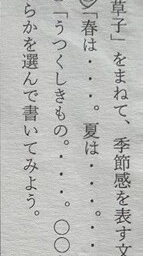 草子」をまねて、季節感を表す文
「春は・・・。夏は・・・。
「うつくしきもの。・・・。〇〇
らかを選んで書いてみよう。